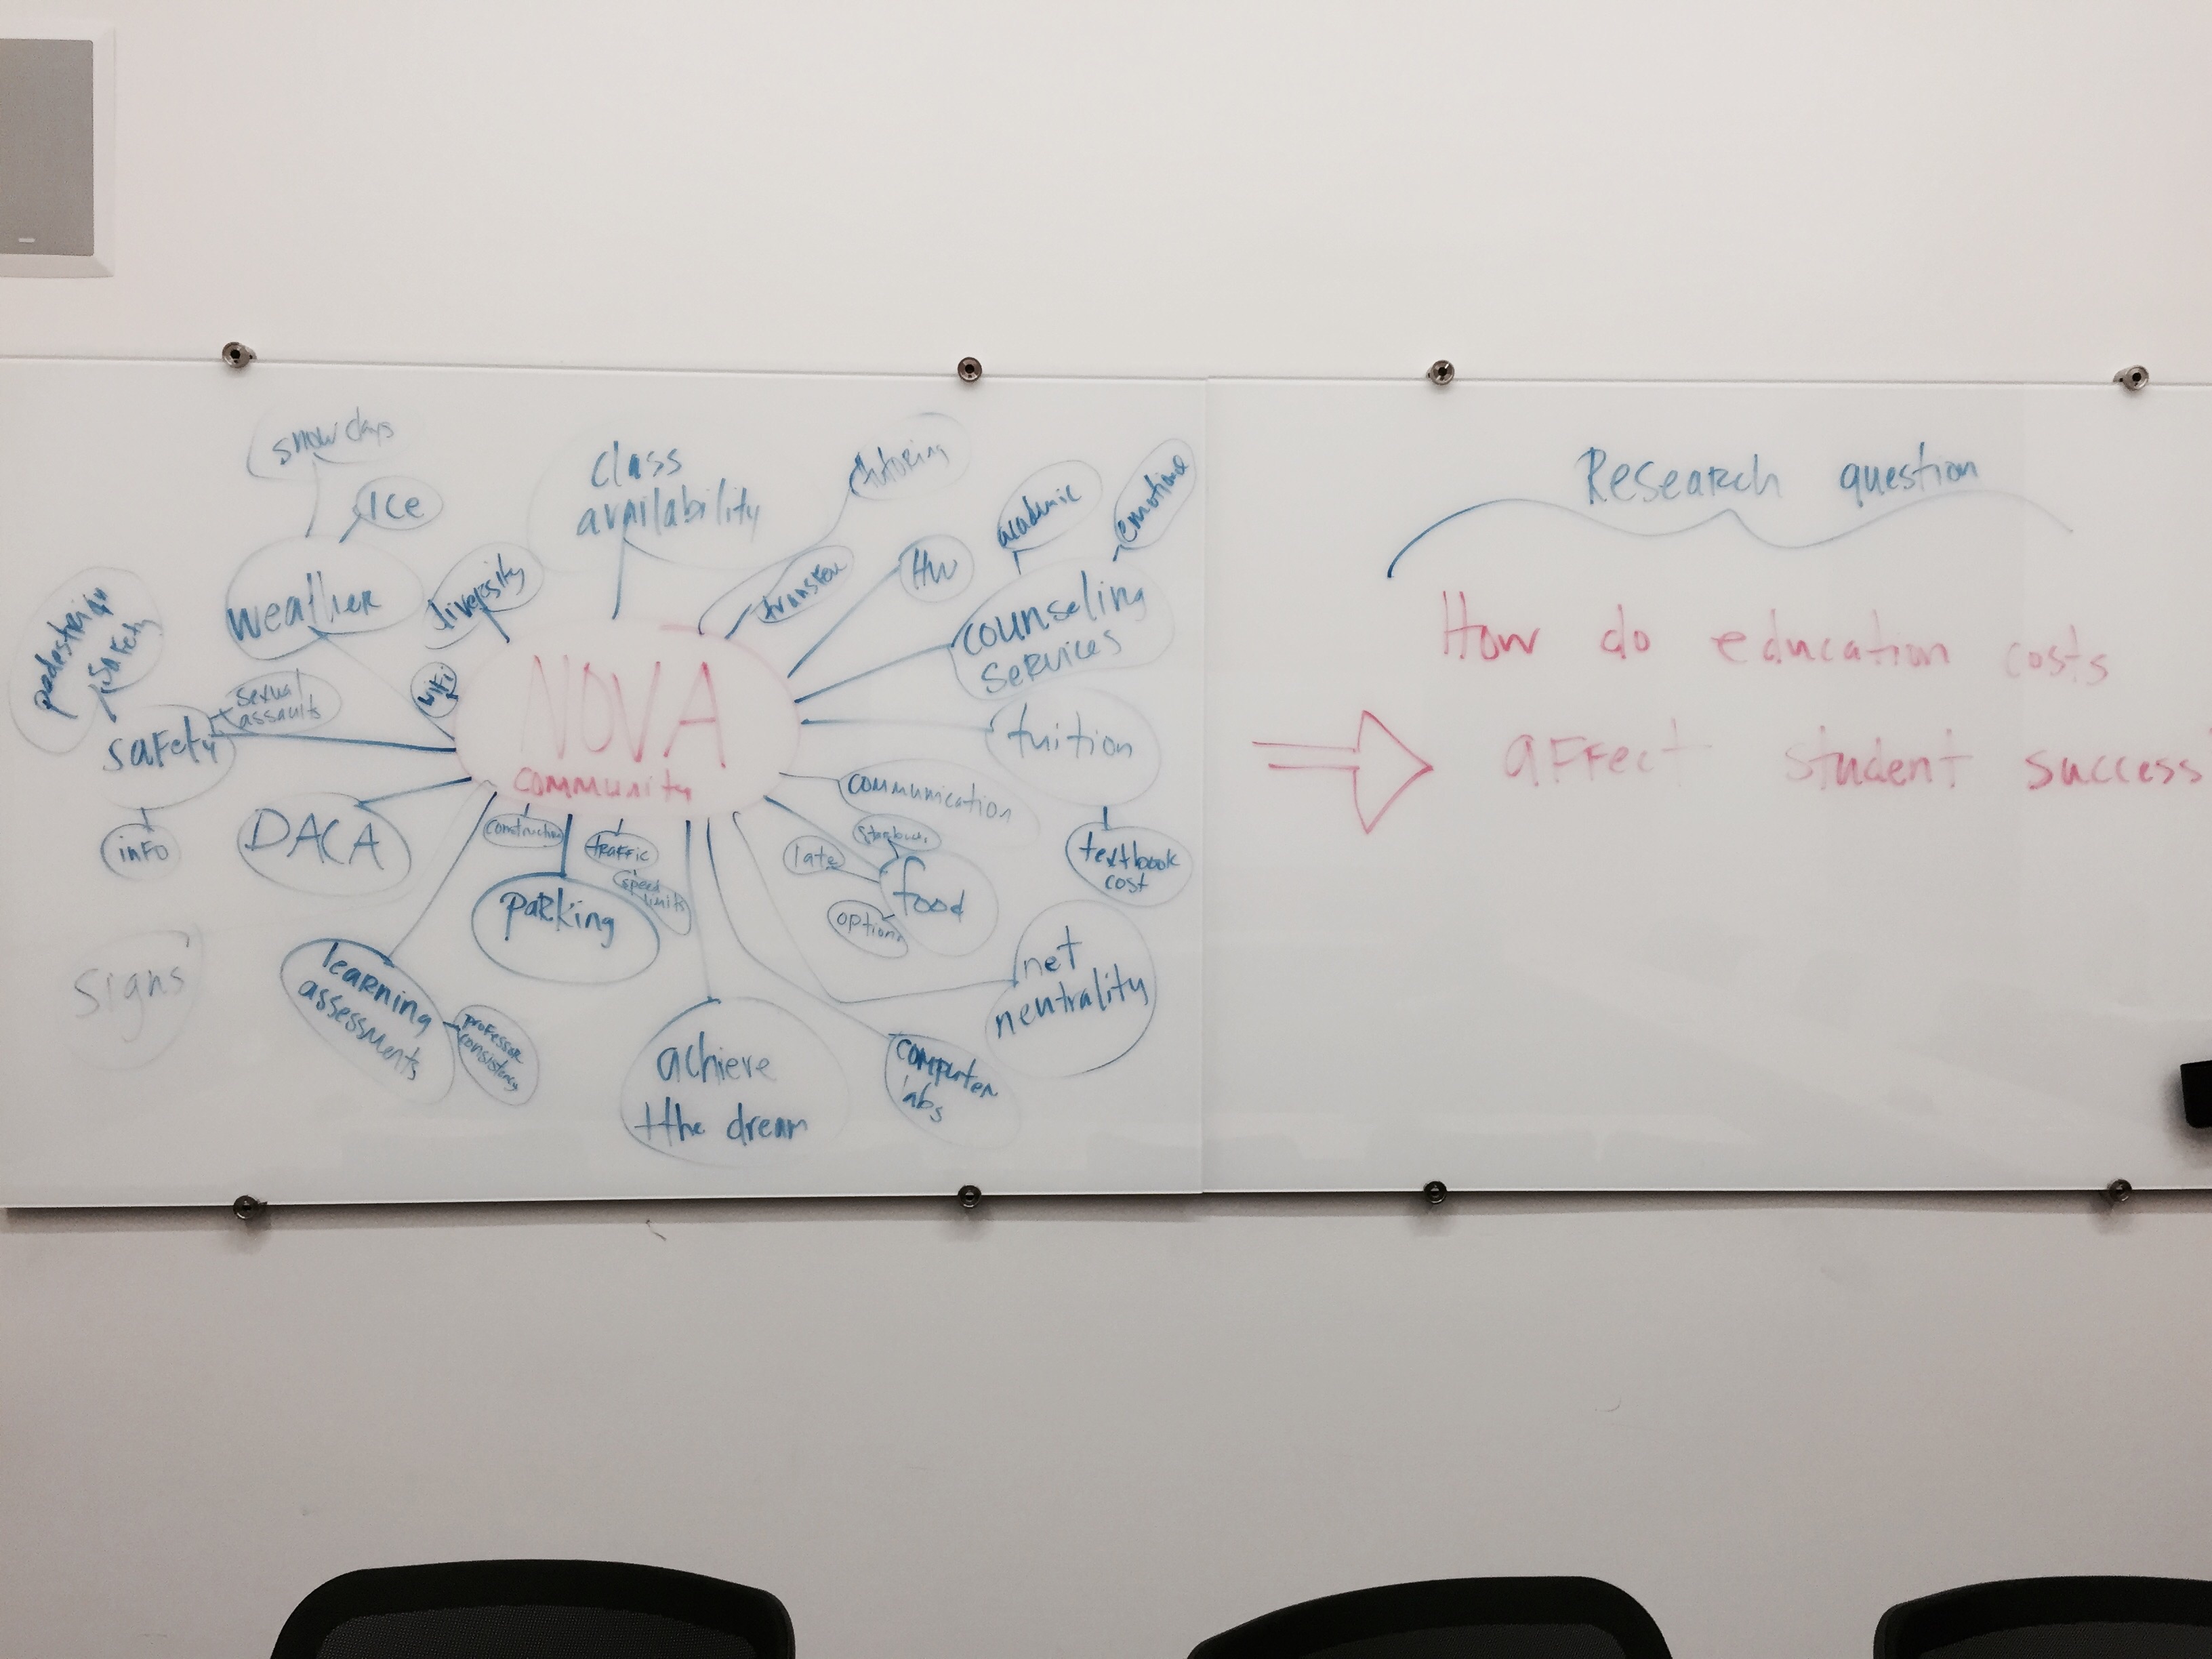 snow days
Ice
weather
pedestrian
safety
sexual
assaults
safety
info
Signs
DACA
diversity
WiFi
class
availability
tutoring
transfer
HW
academic
emotional
counseling
services
NOVA
community
tuition
textbook
cost
communication
starbucks
late
food
options
net
neutrality
computer
labs
construction
traffic
speed
limits
parking
learning
assessments
professor
consistency
achieve
tthe dream
Research question
How do education costs
affect student success